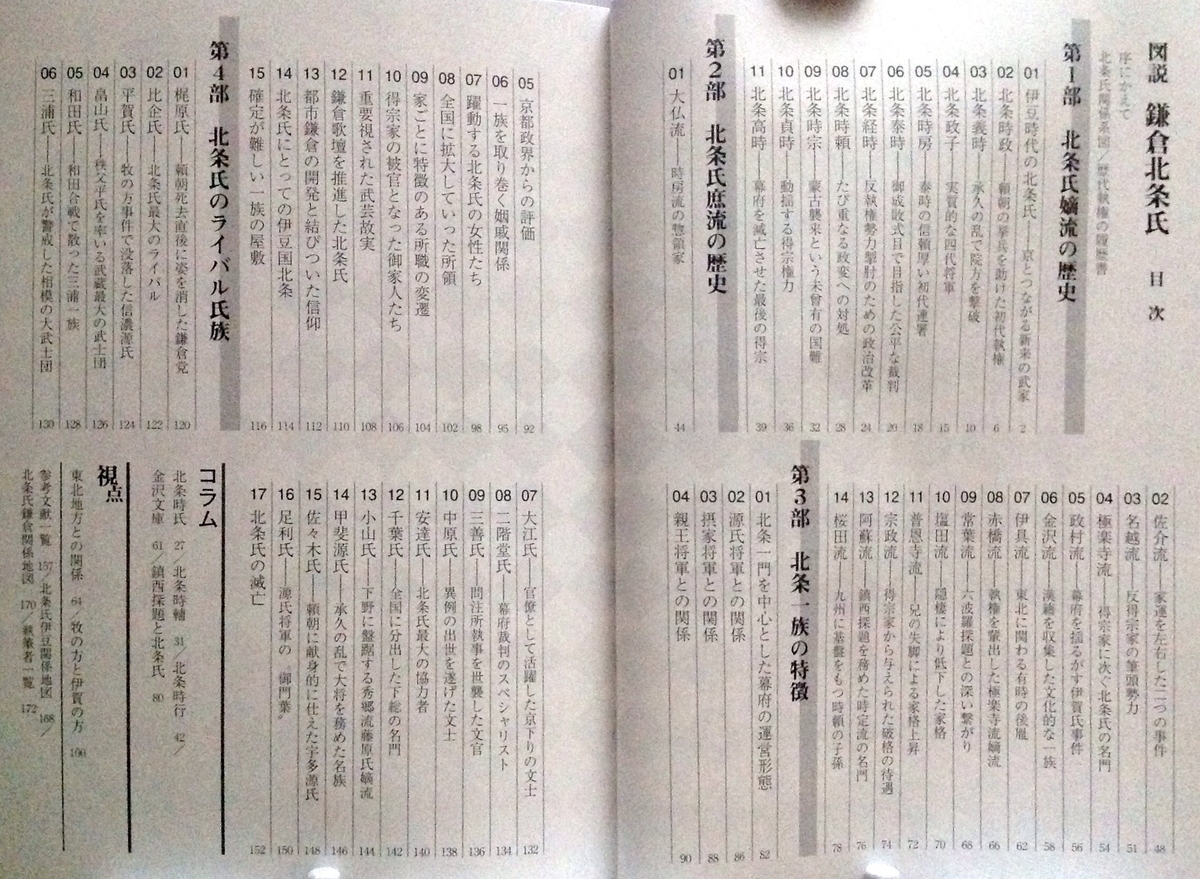 図説 鎌倉北条氏 目次
序にかえて
北条氏関係系図/歴代執権の履歴書
第1部 北条氏嫡流の歴史
01 伊豆時代の北条氏――京とつながる新来の武家 2
02 北条時政――頼朝の挙兵を助けた初代執権 6
03 北条義時――承久の乱で院方を撃破 10
04 北条政子――実質的な四代将軍 15
05 北条時房――泰時の信頼厚い初代連署 18
06 北条泰時――御成敗式目で目指した公平な裁判 20
07 北条経時――反執権勢力掣肘のための政治改革 24
08 北条時頼――たび重なる政変への対処 28
09 北条時宗――蒙古襲来という未曾有の国難 32
10 北条貞時――動揺する得宗権力 36
11 北条高時――幕府を滅亡させた最後の得宗 39
第2部 北条氏庶流の歴史
01 大仏流――時房流の惣領家 44
02 佐介流――家運を左右した二つの事件 48
03 名越流――反得宗家の筆頭勢力 51
04 極楽寺流――得宗家に次ぐ北条氏の名門 54
05 政村流――幕府を揺るがす伊賀氏事件 56
06 金沢流――漢籍を収集した文化的な一族 58
07 伊具流――東北に関わる有時の後胤 62
08 赤橋流――執権を輩出した極楽寺流嫡流 66
09 常葉流――六波羅探題との深い繋がり 68
10 塩田流――隠棲により低下した家格 70
11 普恩寺流――兄の失脚による家格上昇 72
12 宗政流――得宗家から与えられた破格の待遇 74
13 阿蘇流――鎮西探題を務めた時定流の名門 76
14 桜田流――九州に基盤をもつ時頼の子孫 78
第3部 北条一族の特徴
01 北条一門を中心とした幕府の運営形態 82
02 源氏将軍との関係 86
03 摂家将軍との関係 88
04 親王将軍との関係 90
05 京都政界からの評価 92
06 一族を取り巻く姻戚関係 95
07 躍動する北条氏の女性たち 98
08 全国に拡大していった所領 102
09 家ごとに特徴のある所職の変遷 104
10 得宗家の被官となった御家人たち 106
11 重要視された武芸故実 108
12 鎌倉歌壇を推進した北条氏 110
13 都市鎌倉の開発と結びついた信仰 112
14 北条氏にとっての伊豆国北条 114
15 確定が難しい一族の屋敷 116
第4部 北条氏のライバル氏族
01 梶原氏――頼朝死去直後に姿を消した鎌倉党 120
02 比企氏――北条氏最大のライバル 122
03 平賀氏――牧の方事件で没落した信濃源氏 124
04 畠山氏――秩父平氏を率いる武蔵最大の武士団 126
05 和田氏――和田合戦で散った三浦一族 128
06 三浦氏――北条氏が警戒した相模の大武士団 130
07 大江氏――官僚として活躍した京下りの文士 132
08 二階堂氏――幕府裁判のスペシャリスト 134
09 三善氏――問注所執事を世襲した文官 136
10 中原氏――異例の出世を遂げた文士 138
11 安達氏――北条氏最大の協力者 140
12 千葉氏――全国に分出した下総の名門 142
13 小山氏――下野に盤踞する秀郷流藤原氏嫡流 144
14 甲斐源氏――承久の乱で大将を務めた名族 146
15 佐々木氏――頼朝に献身的に仕えた宇多源氏 148
16 足利氏――源氏将軍の〝御門葉〟 150
17 北条氏の滅亡 152
コラム
北条時氏 27/北条時輔 31/北条時行 42/
金沢文庫 61/鎮西探題と北条氏 80
視点
東北地方との関係 64/牧の方と伊賀の方 100
参考文献一覧 157/北条氏伊豆関係地図 168/
北条氏鎌倉関係地図 170/執筆者一覧 172